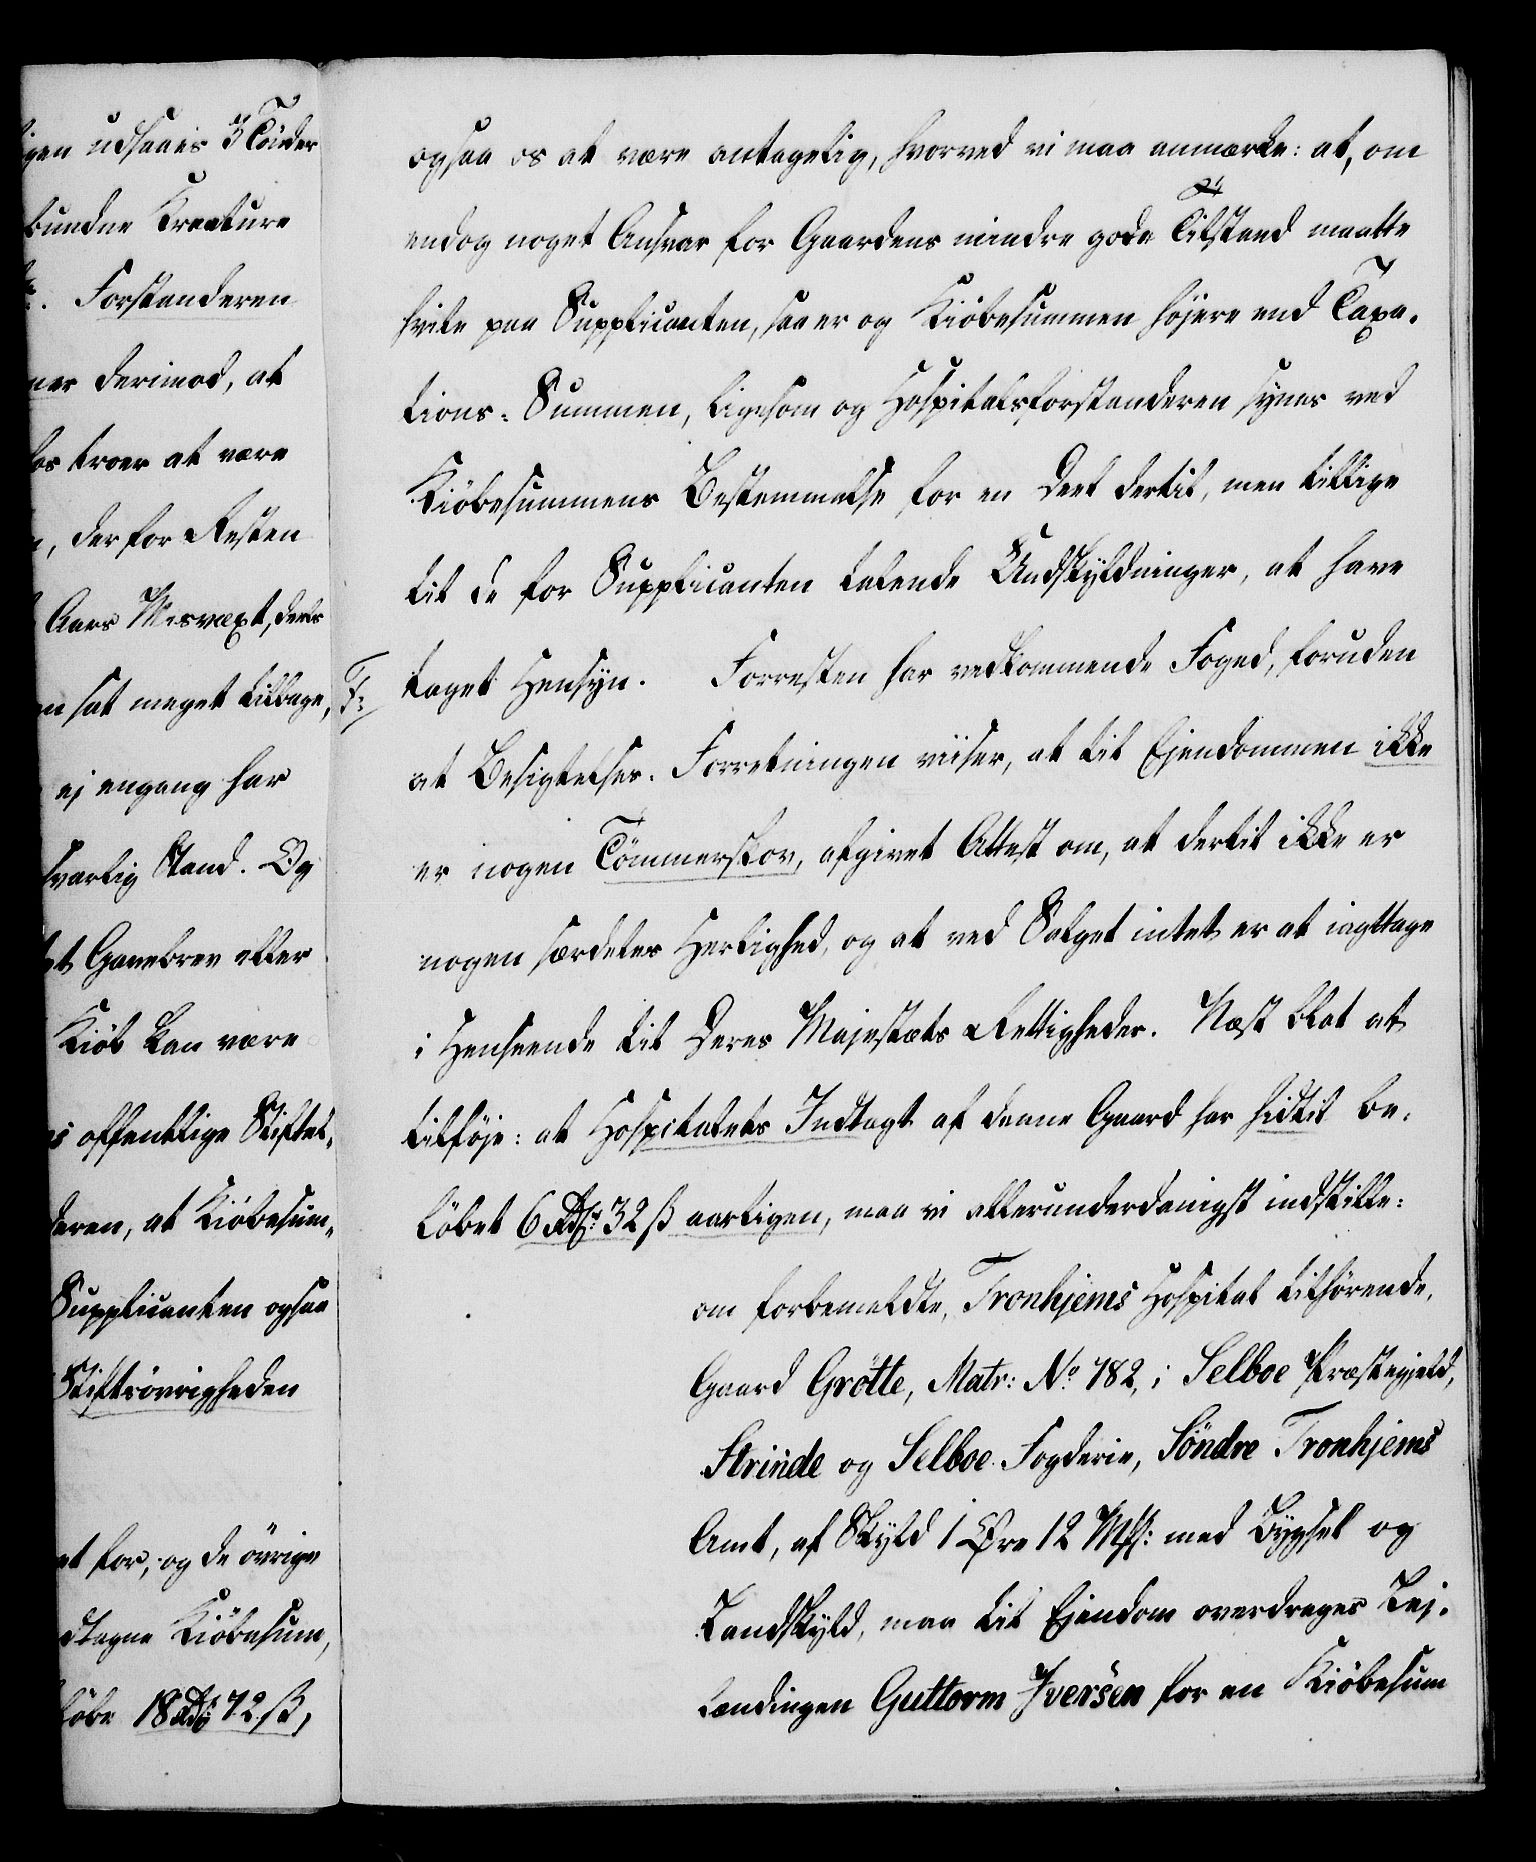 igen udsaaes 3 Tönder
bundne Kreature
. Forstanderen
ner derimod, at
os troer at være
, der for Resten
Aars Misvæxt, deels
en sat meget tilbage,
ej engang har
svarlig Stand. Og
et Gavebrev eller
Kiöb kan være
s offentlige Stiftel-
deren, at Kiöbesum-
Supplicanten ogsaa
Stiftsövrigheden
et for, og de övrige
dtagne Kiöbesum,
löbe 18 Rdr 72 ß,
ogsaa os at være antagelig, hvorved vi maa anmærke: at, om
endog noget Ansvar for Gaardens mindre gode Tilstand maatte
hvile paa Supplicanten, saa er og Kiöbesummen höjere end Taxa-
tions-Summen, ligesom og Hospitalsforstanderen synes ved
Kiöbesummens Bestemmelse for en Deel dertil, men tillige
til de for Supplicanten talende Undskyldninger, at have
F: taget Hensyn. Forresten har vedkommende Foged, foruden
at Besigtelses-Forretningen viiser, at til Ejendommen ikke
er nogen Tömmerskov, afgivet Attest om, at dertil ikke er
nogen særdeles Herlighed, og at ved Salget intet er at iagttage
i Henseende til Deres Majestæts Rettigheder. Næst blot at
tilföje: at Hospitalets Indtægt af denne Gaard har hidtil be-
löbet 6 Rdr: 32 ß aarligen, maa vi allerunderdanigst indstille:
om forbemeldte, Tronhjems Hospital tilhörende,
Gaard Grötte, Matr: No. 182, i Selboe Præstegjeld,
Strinde og Selboe Fogderie, Söndre Tronhjems
Amt, af Skyld 1 Øre 12 Mk: med Bygsel og
Landskyld, maa til Ejendom overdrages Lej-
lændingen Guttorm Iversen for en Kiöbesum